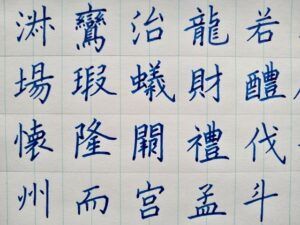 淋 鸞 治 龍 若
場 瑕 蟻 財 醴
懷 隆 關 禮 伐
州 而 宮 孟 斗